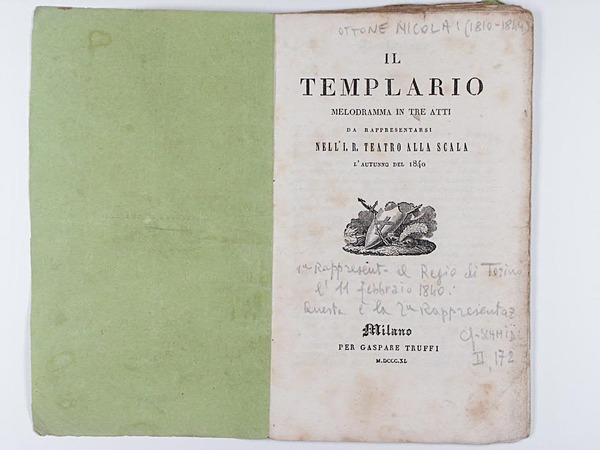 OTTONE NICOLAI (1810-1849)
IL
TEMPLARIO
MELODRAMMA IN TRE ATTI
DA RAPPRESENTARSI
NELL'I. R. TEATRO ALLA SCALA
L'AUTUNNO DEL 1840
1ª Rappresent. al Regio di Torino
l' 11 febbraio 1840.
Questa è la 2ª Rappresentaz
Milano
Cf. SCHMIDL
PER GASPARE TRUFFI
II, 172
M.DCCC.XL